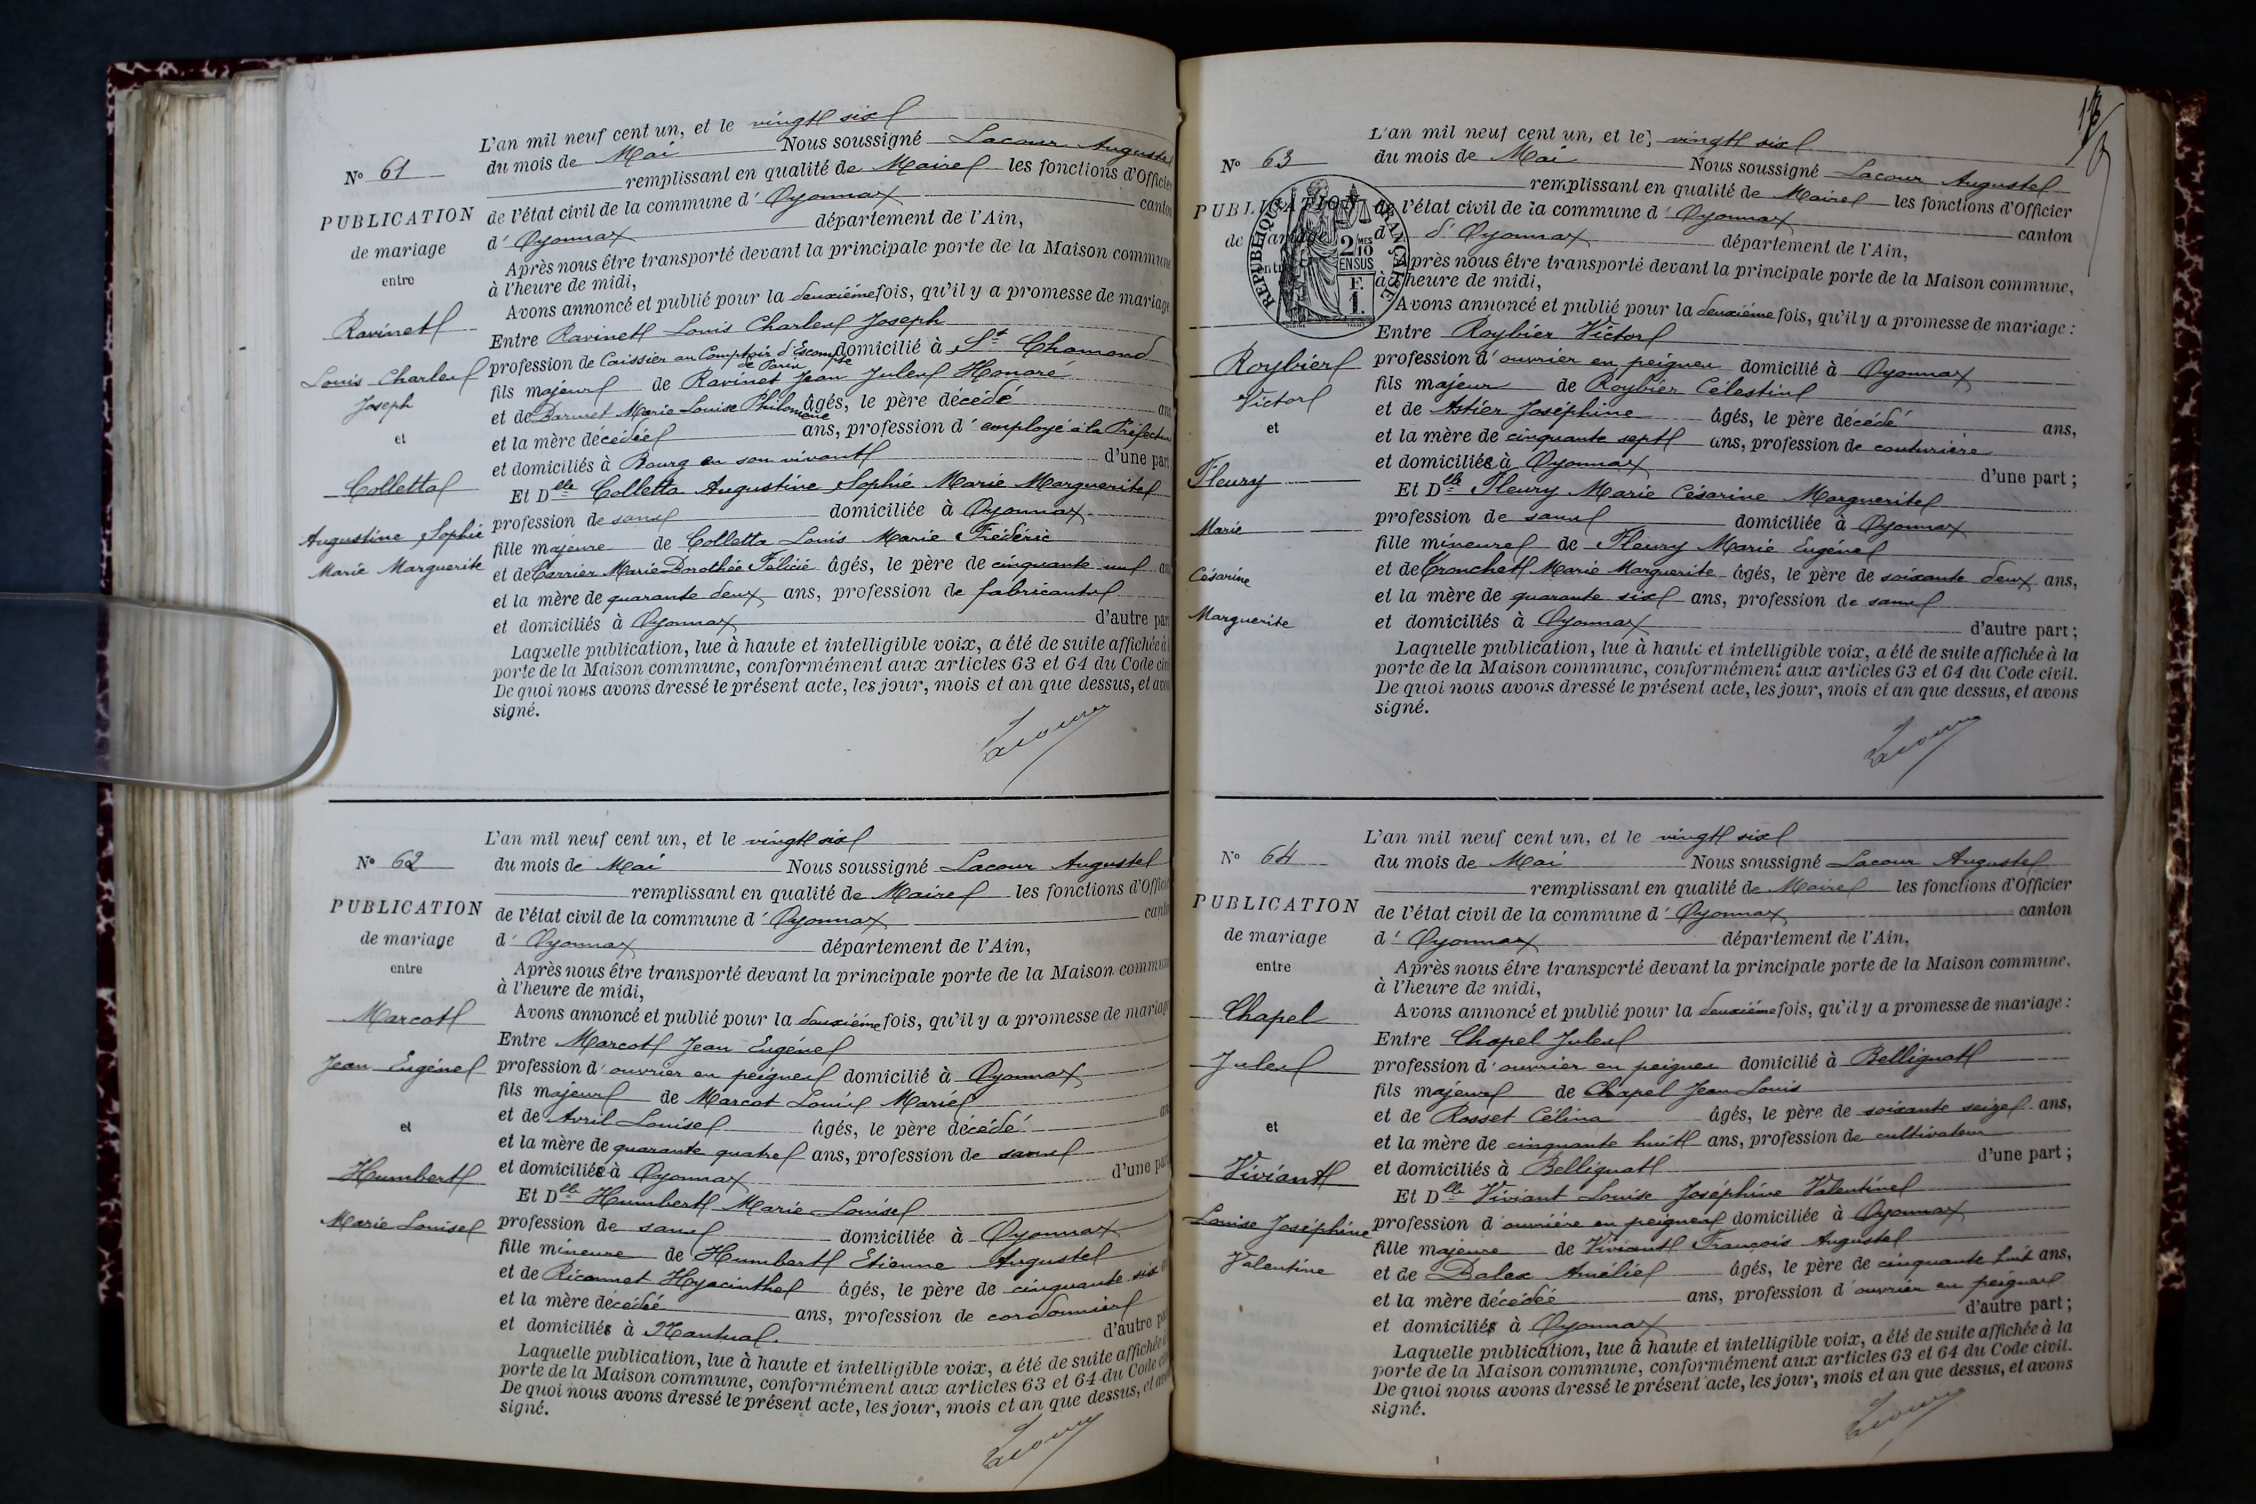 L'an mil neuf cent un, et le vingt six
du mois de Mai Nous soussigné Lacour Auguste
remplissant en qualité de Maire les fonctions d'Officier
de l'état civil de la commune d' Oyonnax canton
d' Oyonnax département de l'Ain,
Après nous être transporté devant la principale porte de la Maison commune
à l'heure de midi,
Avons annoncé et publié pour la deuxième fois, qu'il y a promesse de mariage
Entre Ravinet Louis Charles Joseph
profession de Caissier au Comptoir d'Escompte de Paris domicilié à St Chamond
fils majeur de Ravinet Jean Jules Honoré
et de Marie Louise Philomène âgés, le père décédé ans
et la mère décédée ans, profession d' employé à la Préfecture
et domiciliés à Bourg en son vivant d'une part
Et Dlle Colletta Augustine Sophie Marie Marguerite
profession de sans domiciliée à Oyonnax
fille majeure de Colletta Louis Marie Frédéric
et de Carrier Marie Dorothée Félicie âgés, le père de cinquante un ans
et la mère de quarante deux ans, profession de fabricants
et domiciliés à Oyonnax d'autre part
Laquelle publication, lue à haute et intelligible voix, a été de suite affichée à la
porte de la Maison commune, conformément aux articles 63 et 64 du Code civil
De quoi nous avons dressé le présent acte, les jour, mois et an que dessus, et avons
signé.
Lacour
N° 61
PUBLICATION
de mariage
entre
Ravinet
Louis Charles
Joseph
et
Colletta
Augustine Sophie
Marie Marguerite
L'an mil neuf cent un, et le vingt six
du mois de Mai Nous soussigné Lacour Auguste
remplissant en qualité de Maire les fonctions d'Officier
de l'état civil de la commune d' Oyonnax canton
d' Oyonnax département de l'Ain,
Après nous être transporté devant la principale porte de la Maison commune
à l'heure de midi,
Avons annoncé et publié pour la deuxième fois, qu'il y a promesse de mariage
Entre Marcot Jean Eugène
profession d' ouvrier en peignes domicilié à Oyonnax
fils majeur de Marcot Louis Marie
et de Avril Louise âgés, le père décédé ans
et la mère de quarante quatre ans, profession de sans
et domiciliée à Oyonnax d'une part
Et Dlle Humbert Marie Louise
profession de sans domiciliée à Oyonnax
fille mineure de Humbert Etienne Auguste
et de Ricannet Hyacinthe âgés, le père de cinquante six
et la mère décédée ans, profession de cordonnier
et domiciliés à Nantua d'autre part
Laquelle publication, lue à haute et intelligible voix, a été de suite affichée à
porte de la Maison commune, conformément aux articles 63 et 64 du Code civil
De quoi nous avons dressé le présent acte, les jour, mois et an que dessus, et avons
signé.
Lacour
N° 62
PUBLICATION
de mariage
entre
Marcot
Jean Eugène
et
Humbert
Marie Louise
L'an mil neuf cent un, et le vingt six
du mois de Mai Nous soussigné Lacour Auguste
remplissant en qualité de Maire les fonctions d'Officier
de l'état civil de la commune d' Oyonnax canton
d d' Oyonnax département de l'Ain,
Après nous être transporté devant la principale porte de la Maison commune,
à l'heure de midi,
Avons annoncé et publié pour la deuxième fois, qu'il y a promesse de mariage :
Entre Roybier Victor
profession d' ouvrier en peignes domicilié à Oyonnax
fils majeur de Roybier Célestin
et de Astier Joséphine âgés, le père décédé ans,
et la mère de cinquante sept ans, profession de couturière
et domiciliée à Oyonnax d'une part ;
Et Dlle Fleury Marie Césarine Marguerite
profession de sans domiciliée à Oyonnax
fille mineure de Fleury Marie Eugène
et de Tronchet Marie Marguerite âgés, le père de soixante deux ans,
et la mère de quarante six ans, profession de sans
et domiciliés à Oyonnax d'autre part ;
Laquelle publication, lue à haute et intelligible voix, a été de suite affichée à la
porte de la Maison commune, conformément aux articles 63 et 64 du Code civil.
De quoi nous avons dressé le présent acte, les jour, mois et an que dessus, et avons
signé.
Lacour
N° 63
PUBLICATION
de mariage
entre
RÉPUBLIQUE FRANÇAISE
2 MES
10
EN SUS
F.
1.
Roybier
Victor
et
Fleury
Marie
Césarine
Marguerite
L'an mil neuf cent un, et le vingt six
du mois de Mai Nous soussigné Lacour Auguste
remplissant en qualité de Maire les fonctions d'Officier
de l'état civil de la commune d' Oyonnax canton
d' Oyonnax département de l'Ain,
Après nous être transporté devant la principale porte de la Maison commune,
à l'heure de midi,
Avons annoncé et publié pour la deuxième fois, qu'il y a promesse de mariage :
Entre Chapel Jules
profession d' ouvrier en peignes domicilié à Bellignat
fils majeur de Chapel Jean Louis
et de Rosset Célina âgés, le père de soixante seize ans,
et la mère de cinquante huit ans, profession de cultivateur
et domiciliés à Bellignat d'une part ;
Et Dlle Viviant Louise Joséphine Valentine
profession d' ouvrière en peignes domiciliée à Oyonnax
fille majeure de Viviant François Auguste
et de Dalex Amélie âgés, le père de cinquante huit ans,
et la mère décédée ans, profession d' ouvrier en peignes
et domiciliés à Oyonnax d'autre part ;
Laquelle publication, lue à haute et intelligible voix, a été de suite affichée à la
porte de la Maison commune, conformément aux articles 63 et 64 du Code civil.
De quoi nous avons dressé le présent acte, les jour, mois et an que dessus, et avons
signé.
Lacour
N° 64
PUBLICATION
de mariage
entre
Chapel
Jules
et
Viviant
Louise Joséphine
Valentine